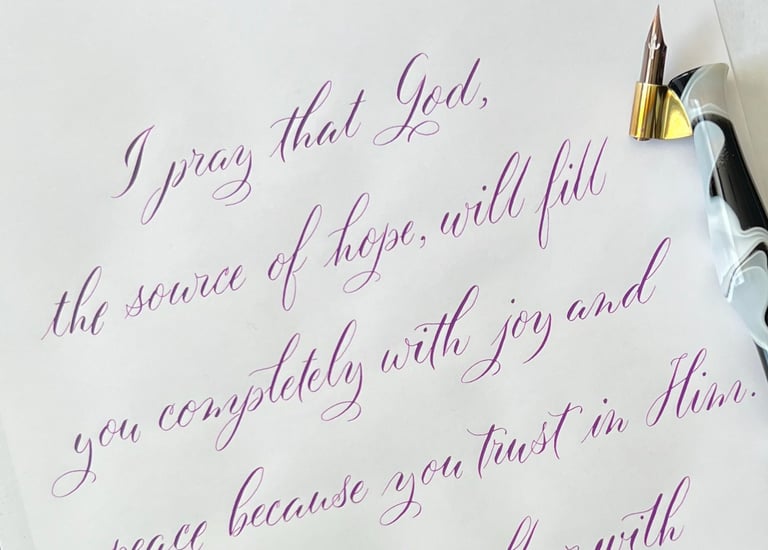 I pray that God,
the source of hope, will fill
you completely with joy and
peace because you trust in Him.
with